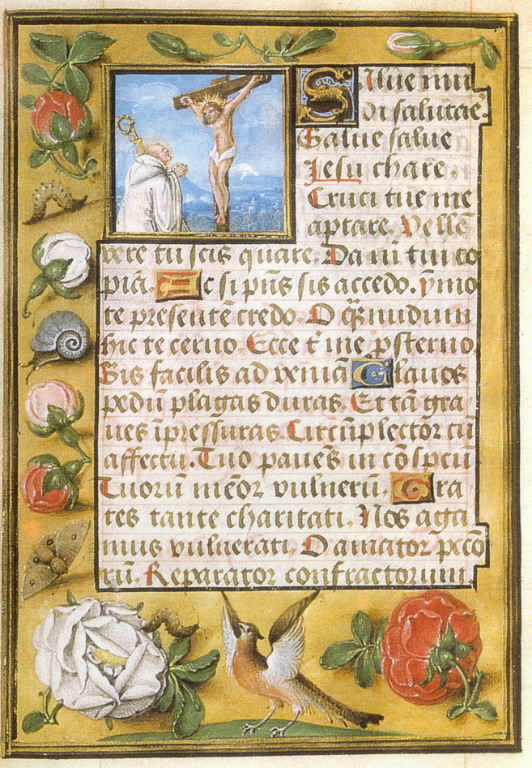 Salue mun
di salutare.
Salue salue
Iesu chare.
Cruci tue me
aptare. Vellē
vere tu scis quare. Da mi tui co
piā. Ac si pn̄s sis accedo. ymo
te presentē credo. O q̄ nudum
hic te cerno. Ecce t̄ me psterno
Sis facilis ad veniā Clauos
pedū plagas duras. Et tā gra
ues īpressuras Circūplector cū
affectu. Tuo paues in cōspcū
Tuorū memor vulnerū. Gra
tes tante charitati. Nos aga
mus vulnerati. O amator pcco
rū. Reparator confractorum.